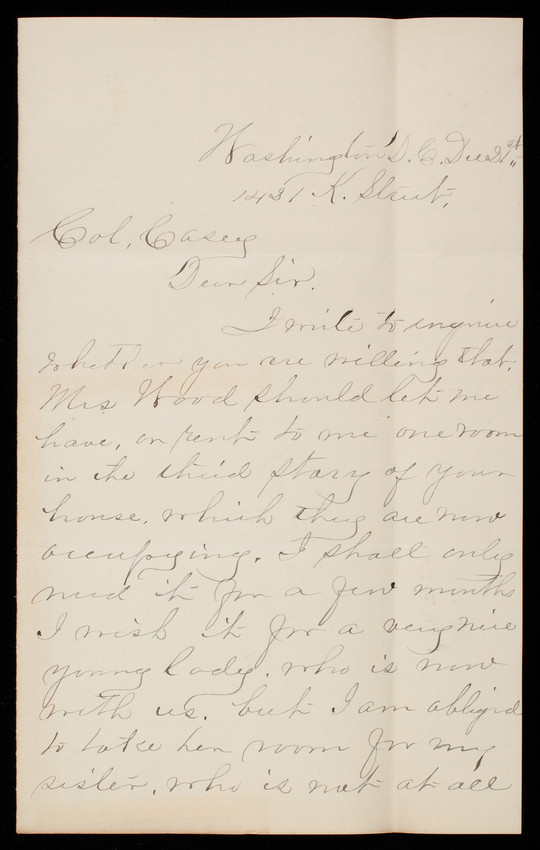 Washington D. C. Dec 21st
1431 K. Street,
Col, Casey
Dear Sir.
I write to enquire
whether you are willing that,
Mrs Wood should let me
have, or rent to me one room
in the third story of your
house, which they are now
occupying. I shall only
need it for a few months
I wish it for a very nice
young lady. who is now
with us. but I am obliged
to take her room for my
sister, who is not at all